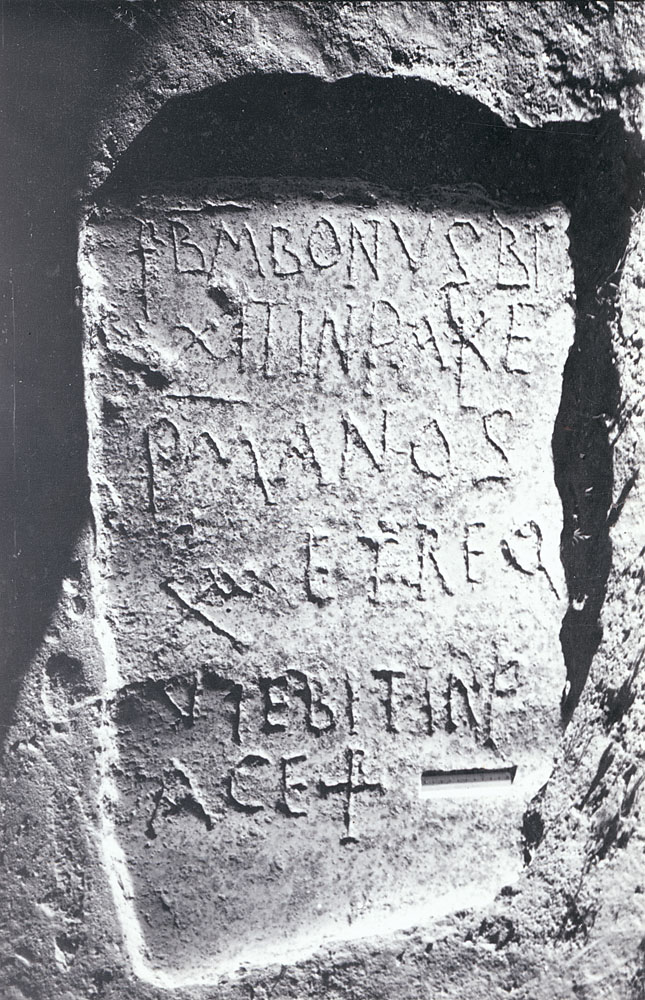 +BMBONVSBI
XITINPACE
PMANOS
ETREQ
VIEBITINP
ACE+